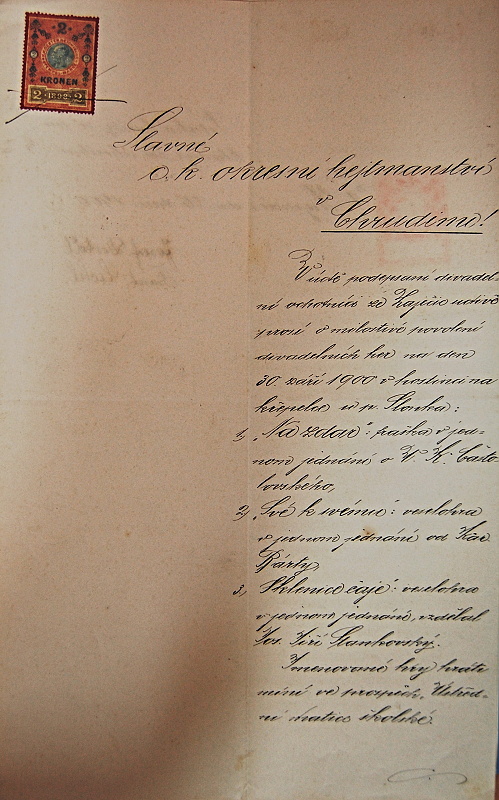 2
KRONEN
2 1898 2
Slavné
c. k. okresní hejtmanství
v
Chrudimi!
V úctě podepsaní divadel-
ní ochotníci ze uctivě
prosí o milostivé povolení
divadelních her na den
30. září 1900 v hostinci na
křepelce u p. Slonka:
1, „Na zdar": fraška v jed-
nom jednání o V. K.
2, „Své k svému": veselohra
v jednom jednání od Kar.
Bárty,
3, „Sklenice čaje": veselohra
v jednom jednání, vzdělal
Jos. Jiří Stankovský.
Jmenované hry hráti
míní ve prospěch „Ústřed-
ní matice školské.